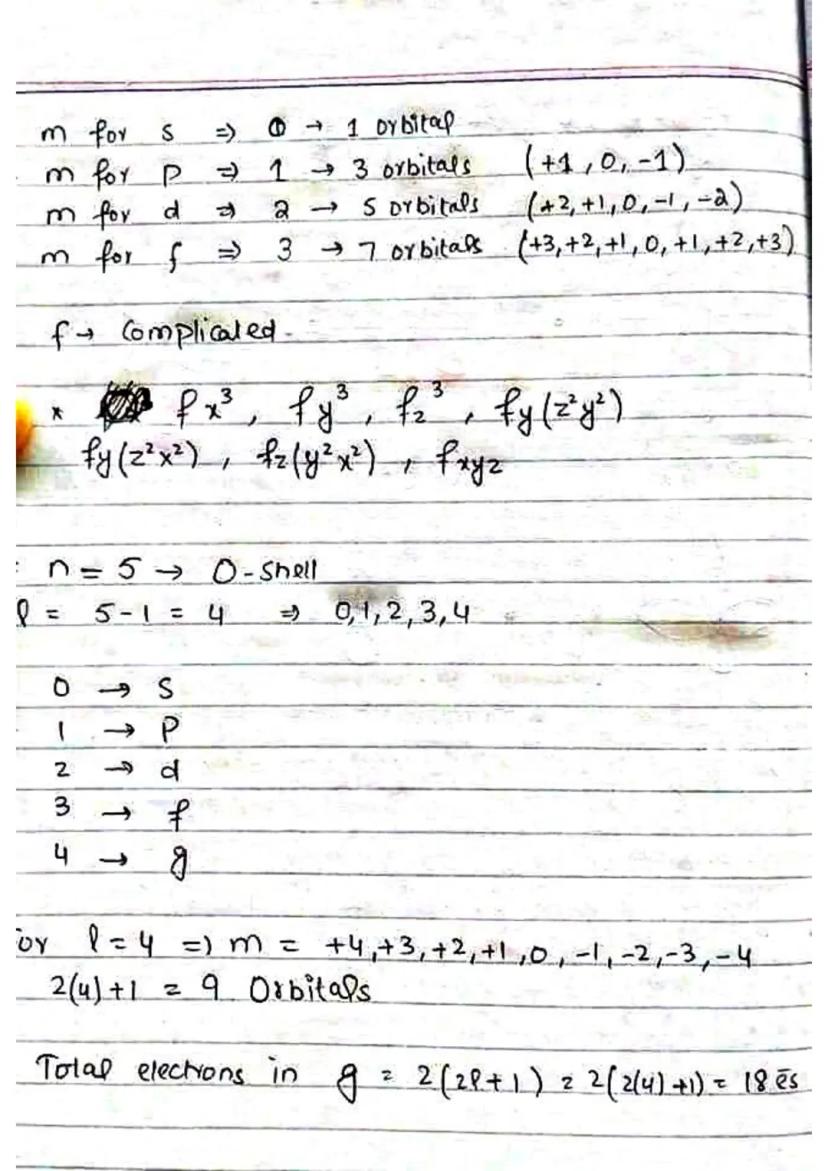 m for s ⇒ 0 → 1 orbital
m for p ⇒ 1 → 3 orbitals (+1, 0, -1)
m for d ⇒ 2 → 5 orbitals (+2, +1, 0, -1, -2)
m for f ⇒ 3 → 7 orbitals (+3, +2, +1, 0, +1, +2, +3)
f → Complicated.
* fx³, fy³, fz³, fy(z²y²)
fy(z²x²), fz(y²x²), fxyz
n = 5 → O-shell
l = 5-1 = 4 ⇒ 0,1,2,3,4
0 → s
1 → p
2 → d
3 → f
4 → g
for l=4 => m = +4,+3,+2,+1,0,-1,-2,-3,-4
2(4)+1 = 9 Orbitals
Total electrons in g = 2(2l+1) = 2(2(4)+1) = 18 ēs